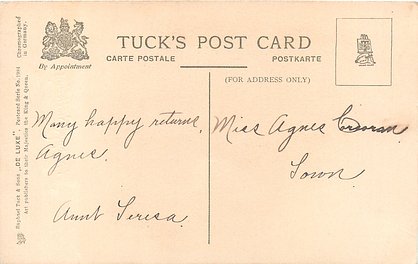 Chromographed
in Germany.
Raphael Tuck & Sons "DE LUXE". Postcard Serie No.
Art publishers to their Majesties the King & Queen.
By Appointment
TUCK'S POST CARD
CARTE POSTALE
POSTKARTE
(FOR ADDRESS ONLY)
Many happy returns,
Agnes.
Aunt Teresa
Miss Agnes Corcoran
Town